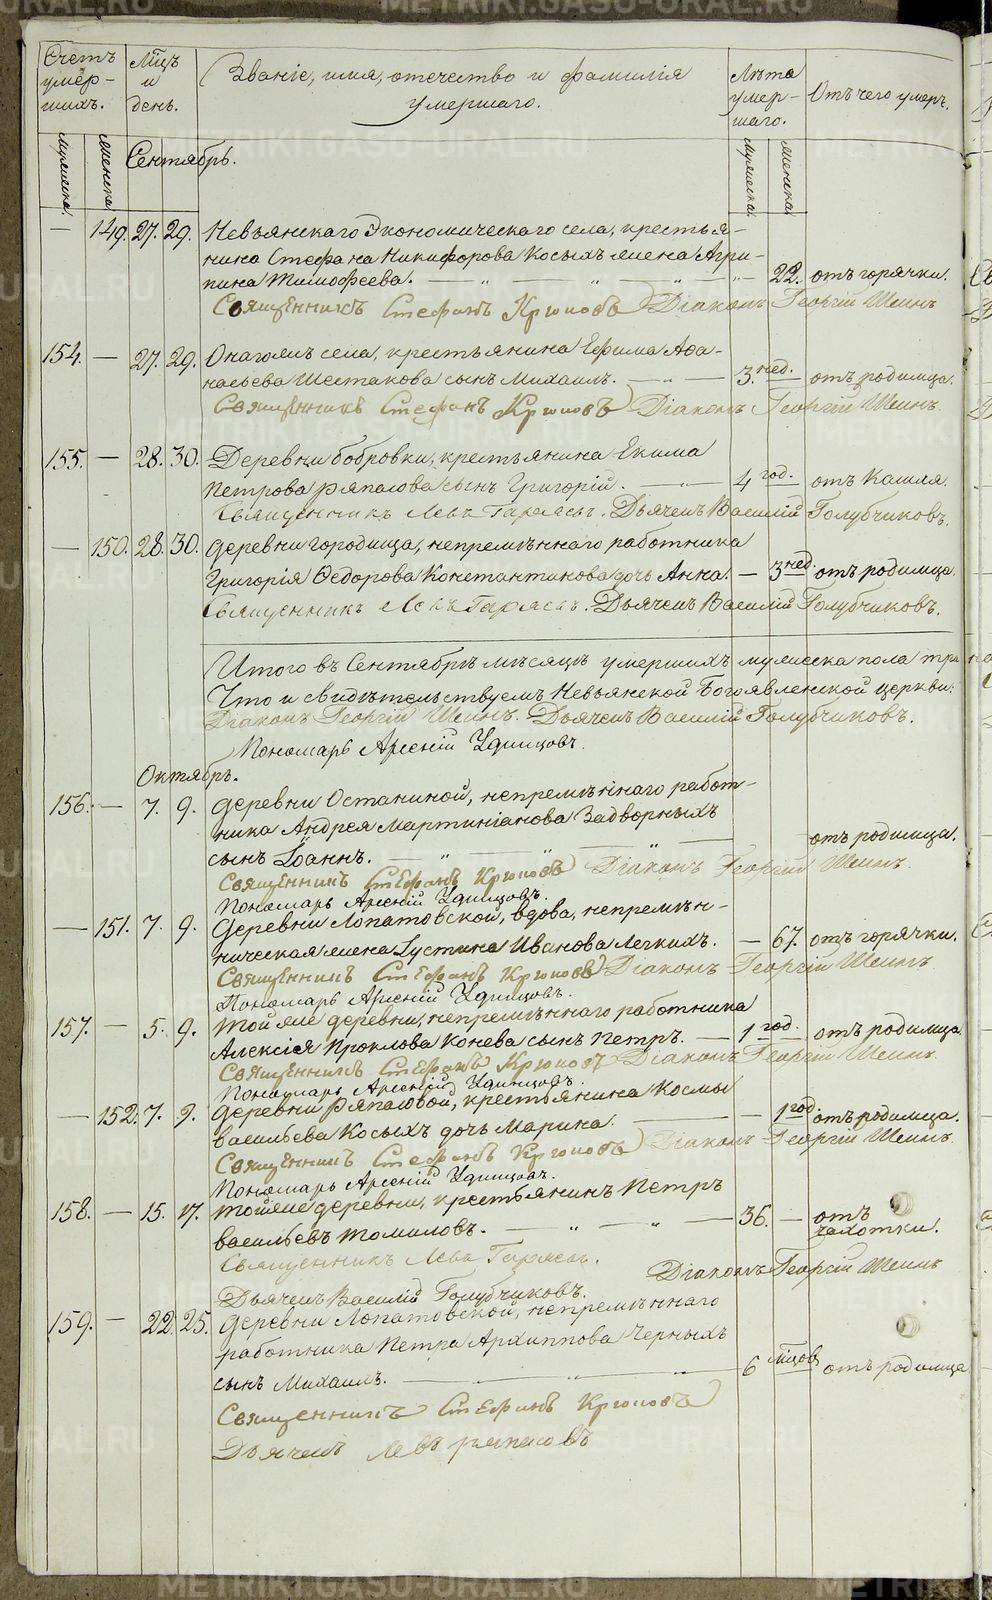 Счетъ умер-шихъ.
Мцъ и день.
Званіе, имя, отечество и фамилія умершаго.
Лѣта умер-шаго.
Отъ чего умеръ.
мужеска.
женска
Сентябрь.
мужеска
женска
— 149. 27. 29. Невьянскаго Экономическаго села, крестья-
нина Стефана Никифорова Косыхъ жена Агри-
пина Тимофеева. — 22. отъ горячки.
Священникъ Стефанъ Крюковъ Діаконъ Георгій Шеинъ
154. — 27. 29. Онагожъ села, крестьянина Ефима Афа-
насьева Шестакова сынъ Михаилъ. — 3. нед. — отъ родимца.
Священникъ Стефанъ Крюковъ Діаконъ Георгій Шеинъ.
155. — 28. 30. Деревни бобровки, крестьянина Екима
Петрова ряпасова сынъ Григорій. — 4 год. — отъ Кашля.
Священникъ Левъ Гаряевъ. Дьячекъ Василій Голубчиковъ.
— 150. 28. 30. деревни городища, непремѣннаго работника
Григорія Ѳедорова Константинова дочь Анна. — 3 нед. отъ родимца.
Священникъ Левъ Гаряевъ. Дьячекъ Василій Голубчиковъ.
Итого въ Сентябрѣ мѣсяцѣ умершихъ мужеска пола три
Что и свидѣтельствуемъ Невьянской Богоявленской церкви:
Діаконъ Георгій Шеинъ. Дьячекъ Василій Голубчиковъ.
Пономарь Арсеній Удинцовъ.
Октябрь.
156. — 7. 9. деревни Останиной, непремѣннаго работ-
ника Андрея Мартиніанова Задворныхъ
сынъ Іоаннъ. — отъ родимца.
Священникъ Стефанъ Крюковъ Діаконъ Георгій Шеинъ
Пономарь Арсеній Удинцовъ.
— 151. 7. 9. деревни Лопатовской, вдова, непремѣн-
ническая жена Іустина Иванова Легкихъ. — 67. отъ горячки.
Священникъ Стефанъ Крюковъ Діаконъ Георгій Шеинъ
Пономарь Арсеній Удинцовъ.
157. — 5. 9. той же деревни, непремѣннаго работника
Алексія Проклова Конева сынъ Петръ. — 1 год. — отъ родимца.
Священникъ Стефанъ Крюковъ Діаконъ Георгій Шеинъ.
Пономарь Арсеній Удинцовъ.
— 152. 7. 9. деревни ряпасовой, крестьянина Космы
васильева Косыхъ дочь Марина. — 1 год отъ родимца.
Священникъ Стефанъ Крюковъ Діаконъ Георгій Шеинъ.
Пономарь Арсеній Удинцовъ.
158. — 15. 17. тойже деревни, крестьянинъ Петръ
васильевъ томиловъ. — 36. — отъ чахотки.
Священникъ Левъ Гаряевъ. Діаконъ Георгій Шеинъ
Дьячекъ Василій Голубчиковъ.
159. — 22. 25. деревни Лопатовской, непремѣннаго
работника Петра Архиппова Черныхъ
сынъ Михаилъ. — 6 мцовъ отъ родимца
Священникъ Стефанъ Крюковъ
Дьячекъ Левъ ряпасовъ
METRIKI.GASO-URAL.RU